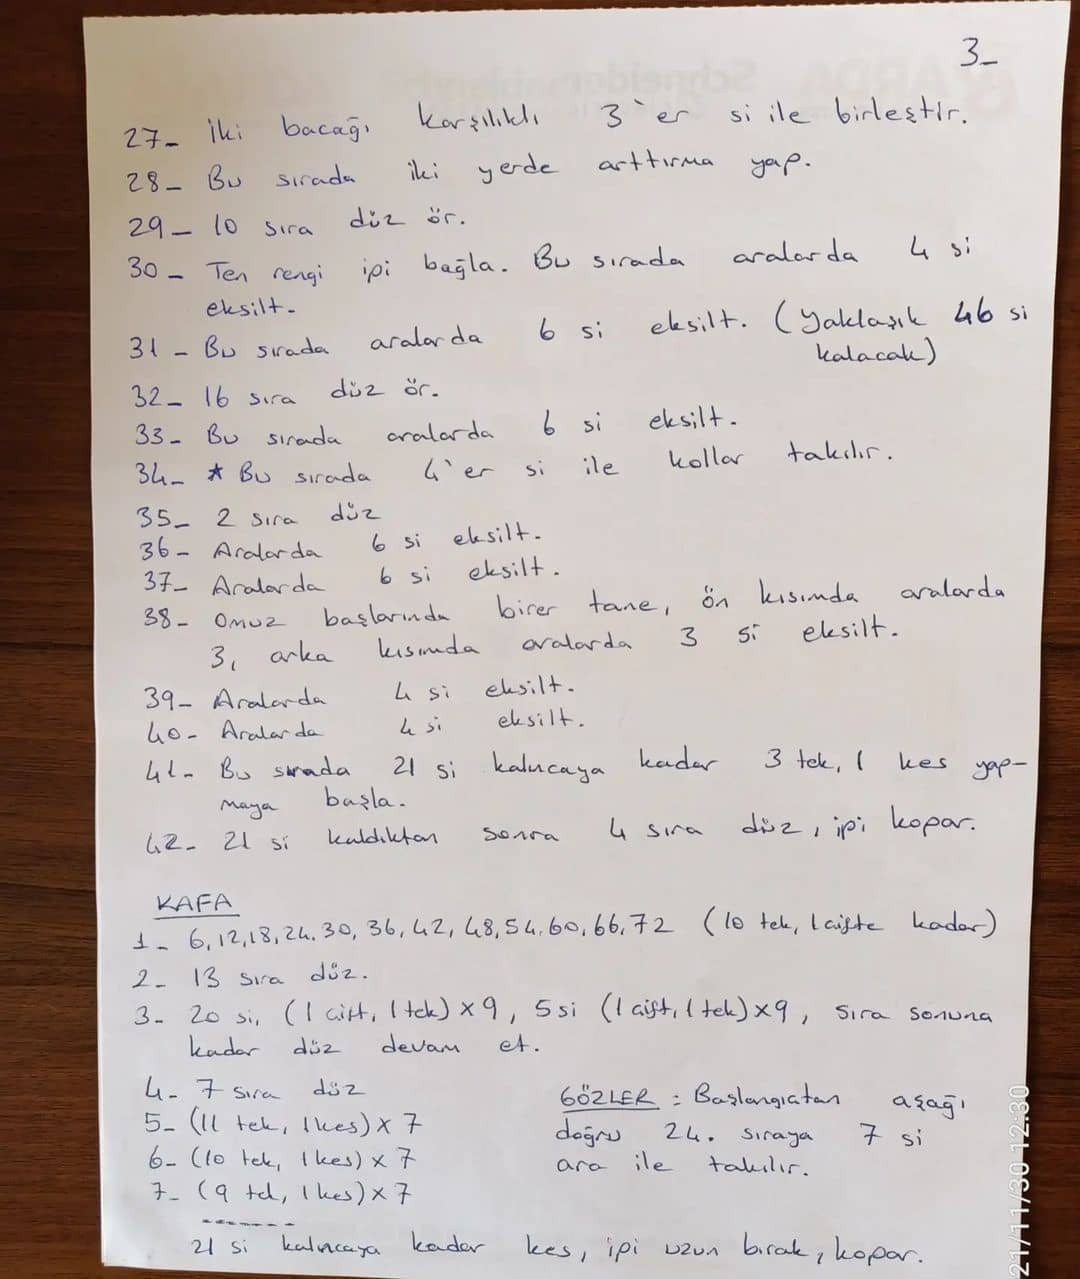 3-
27- İki bacağı karşılıklı 3'er si ile birleştir.
28- Bu sırada iki yerde arttırma yap.
29- 10 sıra düz ör.
30- Ten rengi ipi bağla. Bu sırada aralarda 4 si
eksilt.
31- Bu sırada aralarda 6 si eksilt. (Yaklaşık 46 si
kalacak)
32- 16 sıra düz ör.
33- Bu sırada aralarda 6 si eksilt.
34- * Bu sırada 4'er si ile kollar takılır.
35- 2 sıra düz
36- Aralarda 6 si eksilt.
37- Aralarda 6 si eksilt.
38- Omuz başlarında birer tane, ön kısımda aralarda
3, arka kısımda aralarda 3 si eksilt.
39- Aralarda 4 si eksilt.
40- Aralarda 4 si eksilt.
41- Bu sırada 21 si kalıncaya kadar 3 tek, 1 kes yap-
maya başla.
42- 21 si kaldıktan sonra 4 sıra düz, ipi kopar.
KAFA
1- 6,12,18,24,30,36,42,48,54,60,66,72 (10 tek, 1 çifte kadar)
2- 13 sıra düz.
3- 20 si, (1 çift, 1 tek) x 9, 5 si (1 çift, 1 tek) x 9, sıra sonuna
kadar düz devam et.
4- 7 sıra düz
5- (11 tek, 1 kes) x 7
6- (10 tek, 1 kes) x 7
7- (9 tek, 1 kes) x 7
-------
21 si kalıncaya kadar kes, ipi uzun bırak, kopar.
GÖZLER : Başlangıçtan aşağı
doğru 24. sıraya 7 si
ara ile takılır.
21/11/30 12:30